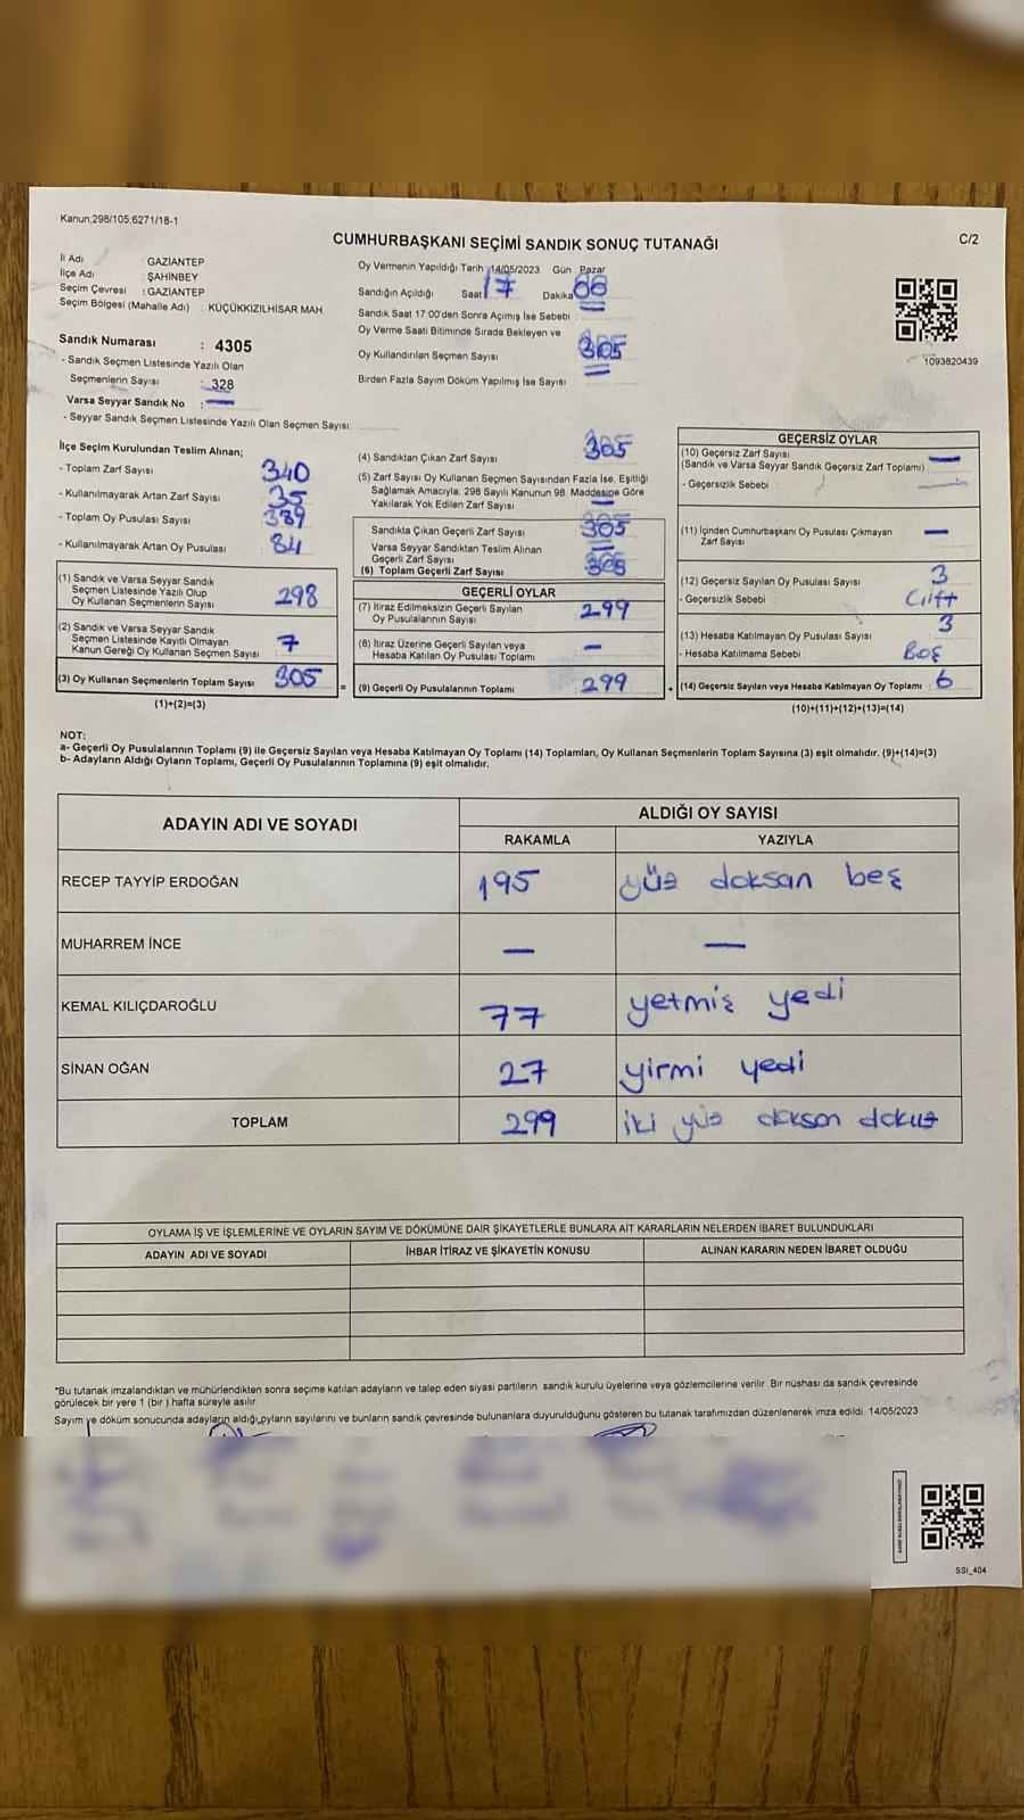 Kanun,298/105,6271/18-1
CUMHURBAŞKANI SEÇİMİ SANDIK SONUÇ TUTANAĞI
C/2
İl Adı : GAZİANTEP
İlçe Adı : ŞAHİNBEY
Seçim Çevresi : GAZİANTEP
Seçim Bölgesi (Mahalle Adı) : KÜÇÜKKIZILHİSAR MAH
Sandık Numarası : 4305
- Sandık Seçmen Listesinde Yazılı Olan
Seçmenlerin Sayısı : 328
Varsa Seyyar Sandık No : —
- Seyyar Sandık Seçmen Listesinde Yazılı Olan Seçmen Sayısı:
Oy Vermenin Yapıldığı Tarih :14/05/2023 Gün : Pazar
Sandığın Açıldığı Saat 17 Dakika
Sandık Saat 17:00'den Sonra Açımış İse Sebebi :
Oy Verme Saati Bitiminde Sırada Bekleyen ve
Oy Kullandırılan Seçmen Sayısı
305
Birden Fazla Sayım Döküm Yapılmış İse Sayısı
1093820439
İlçe Seçim Kurulundan Teslim Alınan;
- Toplam Zarf Sayısı 340
- Kullanılmayarak Artan Zarf Sayısı 35
- Toplam Oy Pusulası Sayısı 389
- Kullanılmayarak Artan Oy Pusulası 84
(1) Sandık ve Varsa Seyyar Sandık
Seçmen Listesinde Yazılı Olup
Oy Kullanan Seçmenlerin Sayısı 298
(2) Sandık ve Varsa Seyyar Sandık
Seçmen Listesinde Kayıtlı Olmayan
Kanun Gereği Oy Kullanan Seçmen Sayısı 7
(3) Oy Kullanan Seçmenlerin Toplam Sayısı 305
(1)+(2)=(3)
(4) Sandıktan Çıkan Zarf Sayısı 305
(5) Zarf Sayısı Oy Kullanan Seçmen Sayısından Fazla İse, Eşitliği
Sağlamak Amacıyla; 298 Sayılı Kanunun 98. Maddesine Göre
Yakılarak Yok Edilen Zarf Sayısı —
Sandıkta Çıkan Geçerli Zarf Sayısı 305
Varsa Seyyar Sandıktan Teslim Alınan
Geçerli Zarf Sayısı —
(6) Toplam Geçerli Zarf Sayısı 305
=
GEÇERLİ OYLAR
(7) İtiraz Edilmeksizin Geçerli Sayılan
Oy Pusulalarının Sayısı 299
(8) İtiraz Üzerine Geçerli Sayılan veya
Hesaba Katılan Oy Pusulası Toplamı —
(9) Geçerli Oy Pusulalarının Toplamı 299
+
GEÇERSİZ OYLAR
(10) Geçersiz Zarf Sayısı
(Sandık ve Varsa Seyyar Sandık Geçersiz Zarf Toplamı) —
- Geçersizlik Sebebi —
(11) İçinden Cumhurbaşkanı Oy Pusulası Çıkmayan
Zarf Sayısı —
(12) Geçersiz Sayılan Oy Pusulası Sayısı 3
- Geçersizlik Sebebi Çift
(13) Hesaba Katılmayan Oy Pusulası Sayısı 3
- Hesaba Katılmama Sebebi Boş
(14) Geçersiz Sayılan veya Hesaba Katılmayan Oy Toplamı 6
(10)+(11)+(12)+(13)=(14)
NOT:
a- Geçerli Oy Pusulalarının Toplamı (9) ile Geçersiz Sayılan veya Hesaba Katılmayan Oy Toplamı (14) Toplamları, Oy Kullanan Seçmenlerin Toplam Sayısına (3) eşit olmalıdır. (9)+(14)=(3)
b- Adayların Aldığı Oyların Toplamı, Geçerli Oy Pusulalarının Toplamına (9) eşit olmalıdır.
ADAYIN ADI VE SOYADI
ALDIĞI OY SAYISI
RAKAMLA YAZIYLA
RECEP TAYYİP ERDOĞAN 195 yüz doksan beş
MUHARREM İNCE — —
KEMAL KILIÇDAROĞLU 77 yetmiş yedi
SİNAN OĞAN 27 yirmi yedi
TOPLAM 299 iki yüz doksan dokuz
OYLAMA İŞ VE İŞLEMLERİNE VE OYLARIN SAYIM VE DÖKÜMÜNE DAİR ŞİKAYETLERLE BUNLARA AİT KARARLARIN NELERDEN İBARET BULUNDUKLARI
ADAYIN ADI VE SOYADI İHBAR İTİRAZ VE ŞİKAYETİN KONUSU ALINAN KARARIN NEDEN İBARET OLDUĞU
*Bu tutanak imzalandıktan ve mühürlendikten sonra seçime katılan adayların ve talep eden siyasi partilerin sandık kurulu üyelerine veya gözlemcilerine verilir. Bir nüshası da sandık çevresinde
görülecek bir yere 1 (bir ) hafta süreyle asılır
Sayım ve döküm sonucunda adayların aldığı oyların sayılarını ve bunların sandık çevresinde bulunanlara duyurulduğunu gösteren bu tutanak tarafımızdan düzenlenerek imza edildi. 14/05/2023
SSI_404